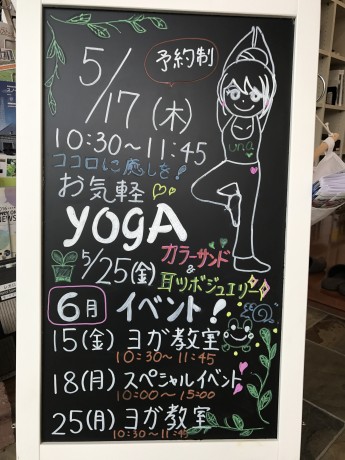 予約制
5/17(木)
10:30～11:45
ココロに癒しを!
お気軽
yogA
una
5/25(金)
カラーサンド
&
耳ツボジュエリー
6月 イベント!
15(金) ヨガ教室
10:30～11:45
18(月) スペシャルイベント
10:00～15:00
25(月) ヨガ教室
10:30～11:45